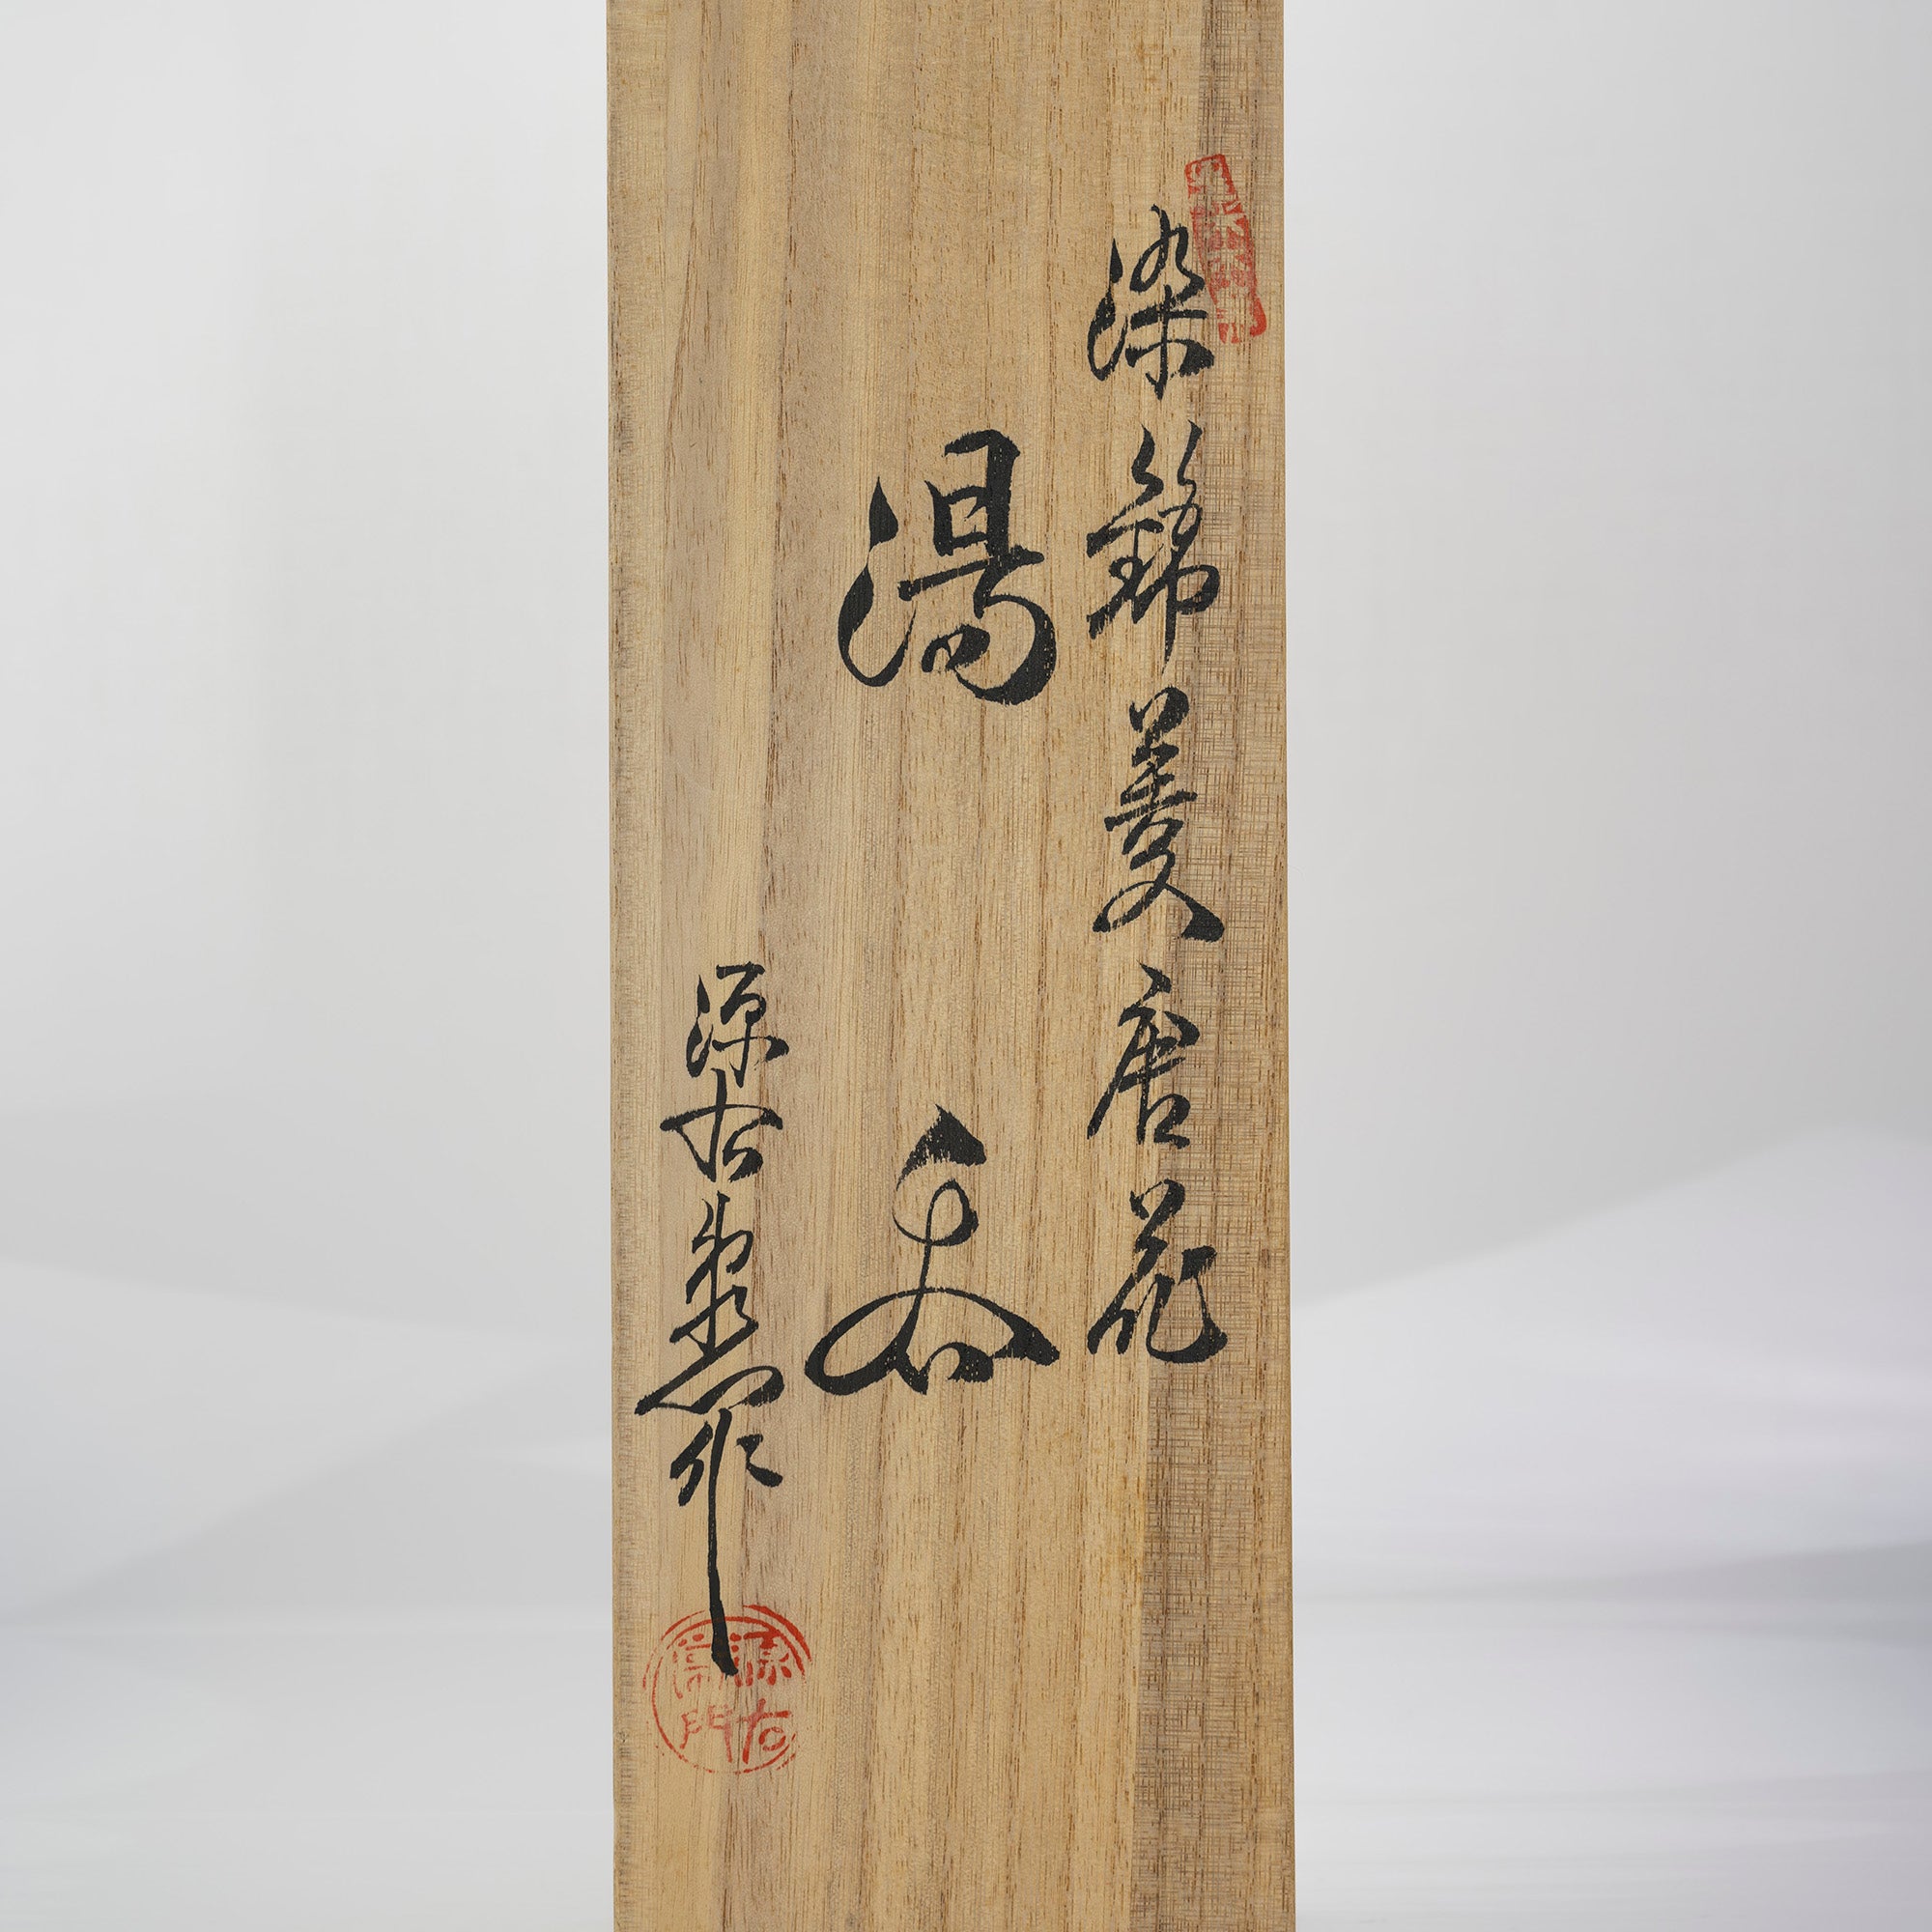 染錦菱唐花
湯呑
源右衛門作
源右衛門